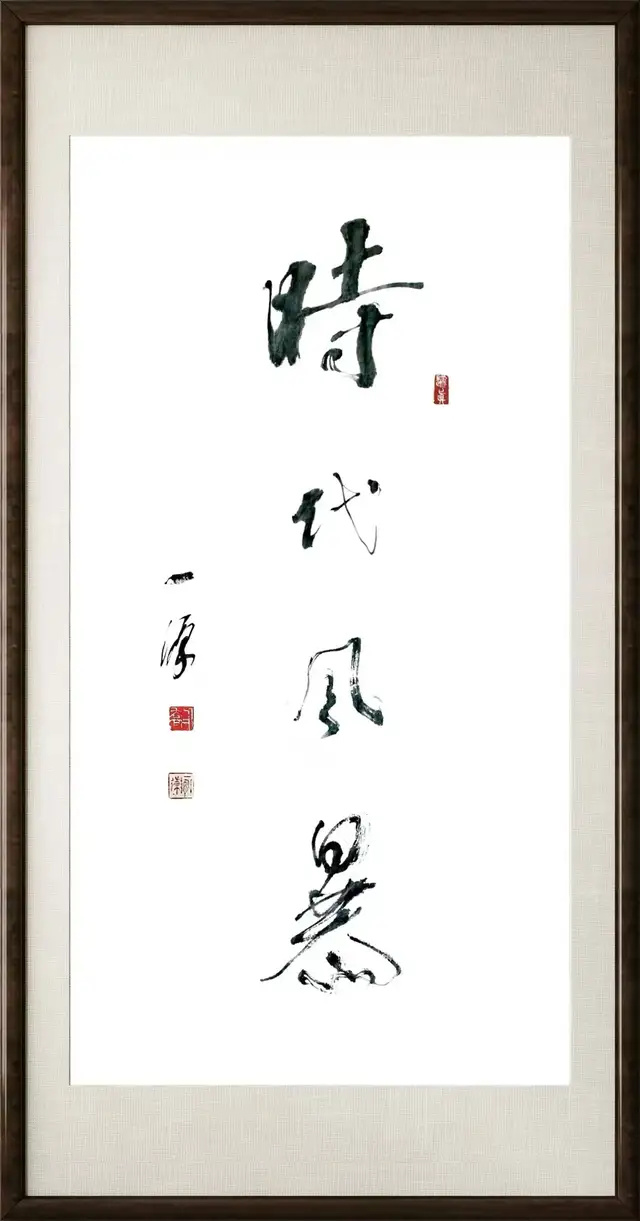 時代風暴
一源